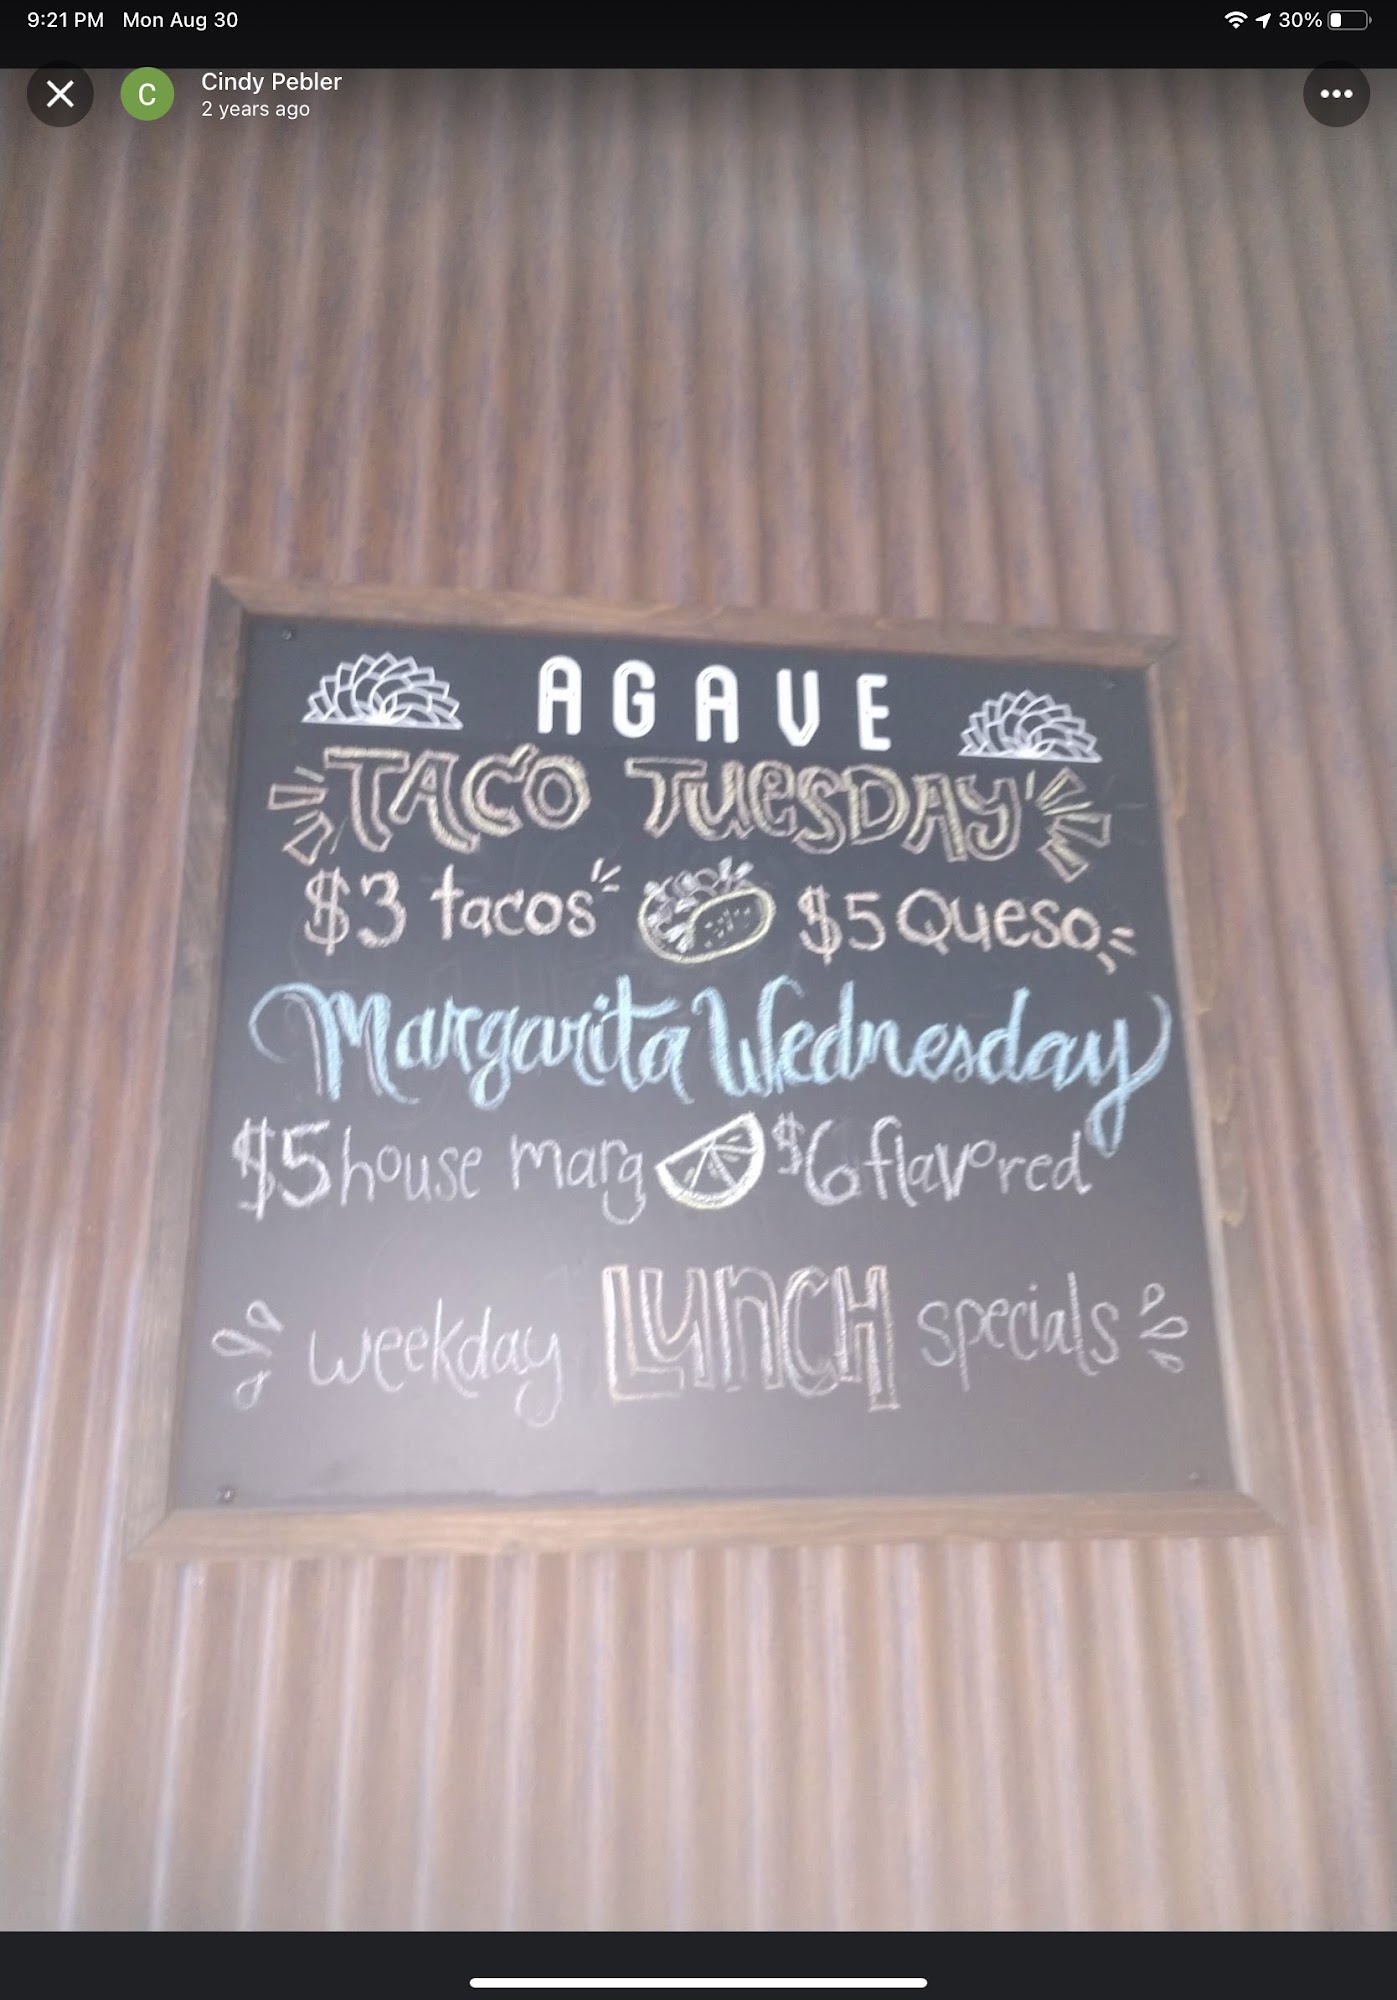 9:21 PM Mon Aug 30 30%
C Cindy Pebler
2 years ago
AGAVE
TACO TUESDAY
$3 tacos $5 Queso
Margarita Wednesday
$5 house marg $6 flavored
weekday LUNCH specials